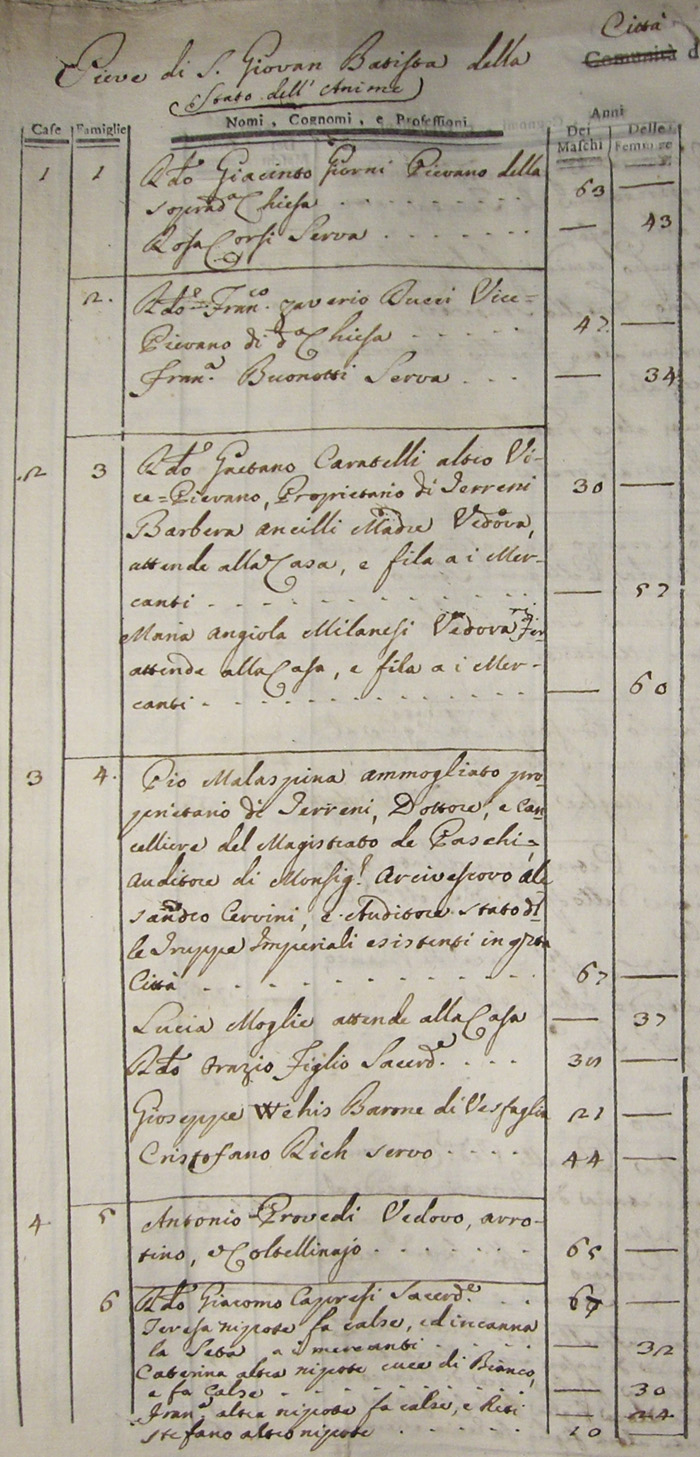 Città
Pieve di S. Giovan Batista della Comunità d
Stato dell'Anime
Case Famiglie Nomi, Cognomi, e Professioni Anni
Dei Maschi Delle Femmine
1 1 Rdo Giacinto Giorni Pievano della
soprada Chiesa . . . . . . . . . 63 —
Rosa Corsi Serva . . . . . . . — 43
2. Rdo Franco Zaverio Bucci Vice=
Pievano di da Chiesa . . . . . 47 —
Frana. Buonotti Serva . . . — 34
2 3 Rdo Gaetano Caratelli altro Vi-
ce=Pievano, Proprietario di Terreni 30 —
Barbera Ancilli Madre Vedova,
attende alla Casa, e fila a i Mer-
canti . . . . . . . . . . . . — 57
Maria Angiola Milanesi Vedova
attende alla Casa, e fila a i Mer-
canti . . . . . . . . . . . . — 60
3 4. Pio Malaspina ammogliato pro
prietario di Terreni, Dottore, e Can
celliere del Magistrato de Paschi,=
Auditore di Monsigr. Arcivescovo Ale
sandro Cervini, e Auditore stato di
le Truppe Imperiali esistenti in qta
Città . . . . . . . . . . . . 67 —
Lucia Moglie attende alla Casa — 37
Rdo Orazio Figlio Sacerde. . . .
Gioseppe Wehis Barone di Vesfaglia 21 —
Cristofano Rich servo . . . . 44 —
4 5 Antonio Provedi Vedovo, arro-
tino, e Coltellinajo . . . . . . . 65 —
6 Rdo Giacomo Capresi Sacerde. . . 67 —
Teresa nipote fa calse, ed incanna
la Seta a i mercanti . . . . . — 32
Caterina altra nipote cuce di Bianco,
e fa Calse . . . . . . . . . . — 30
Frana altra nipote fa calse, e — 24
Stefano altro nipote . . . . . . 20 —